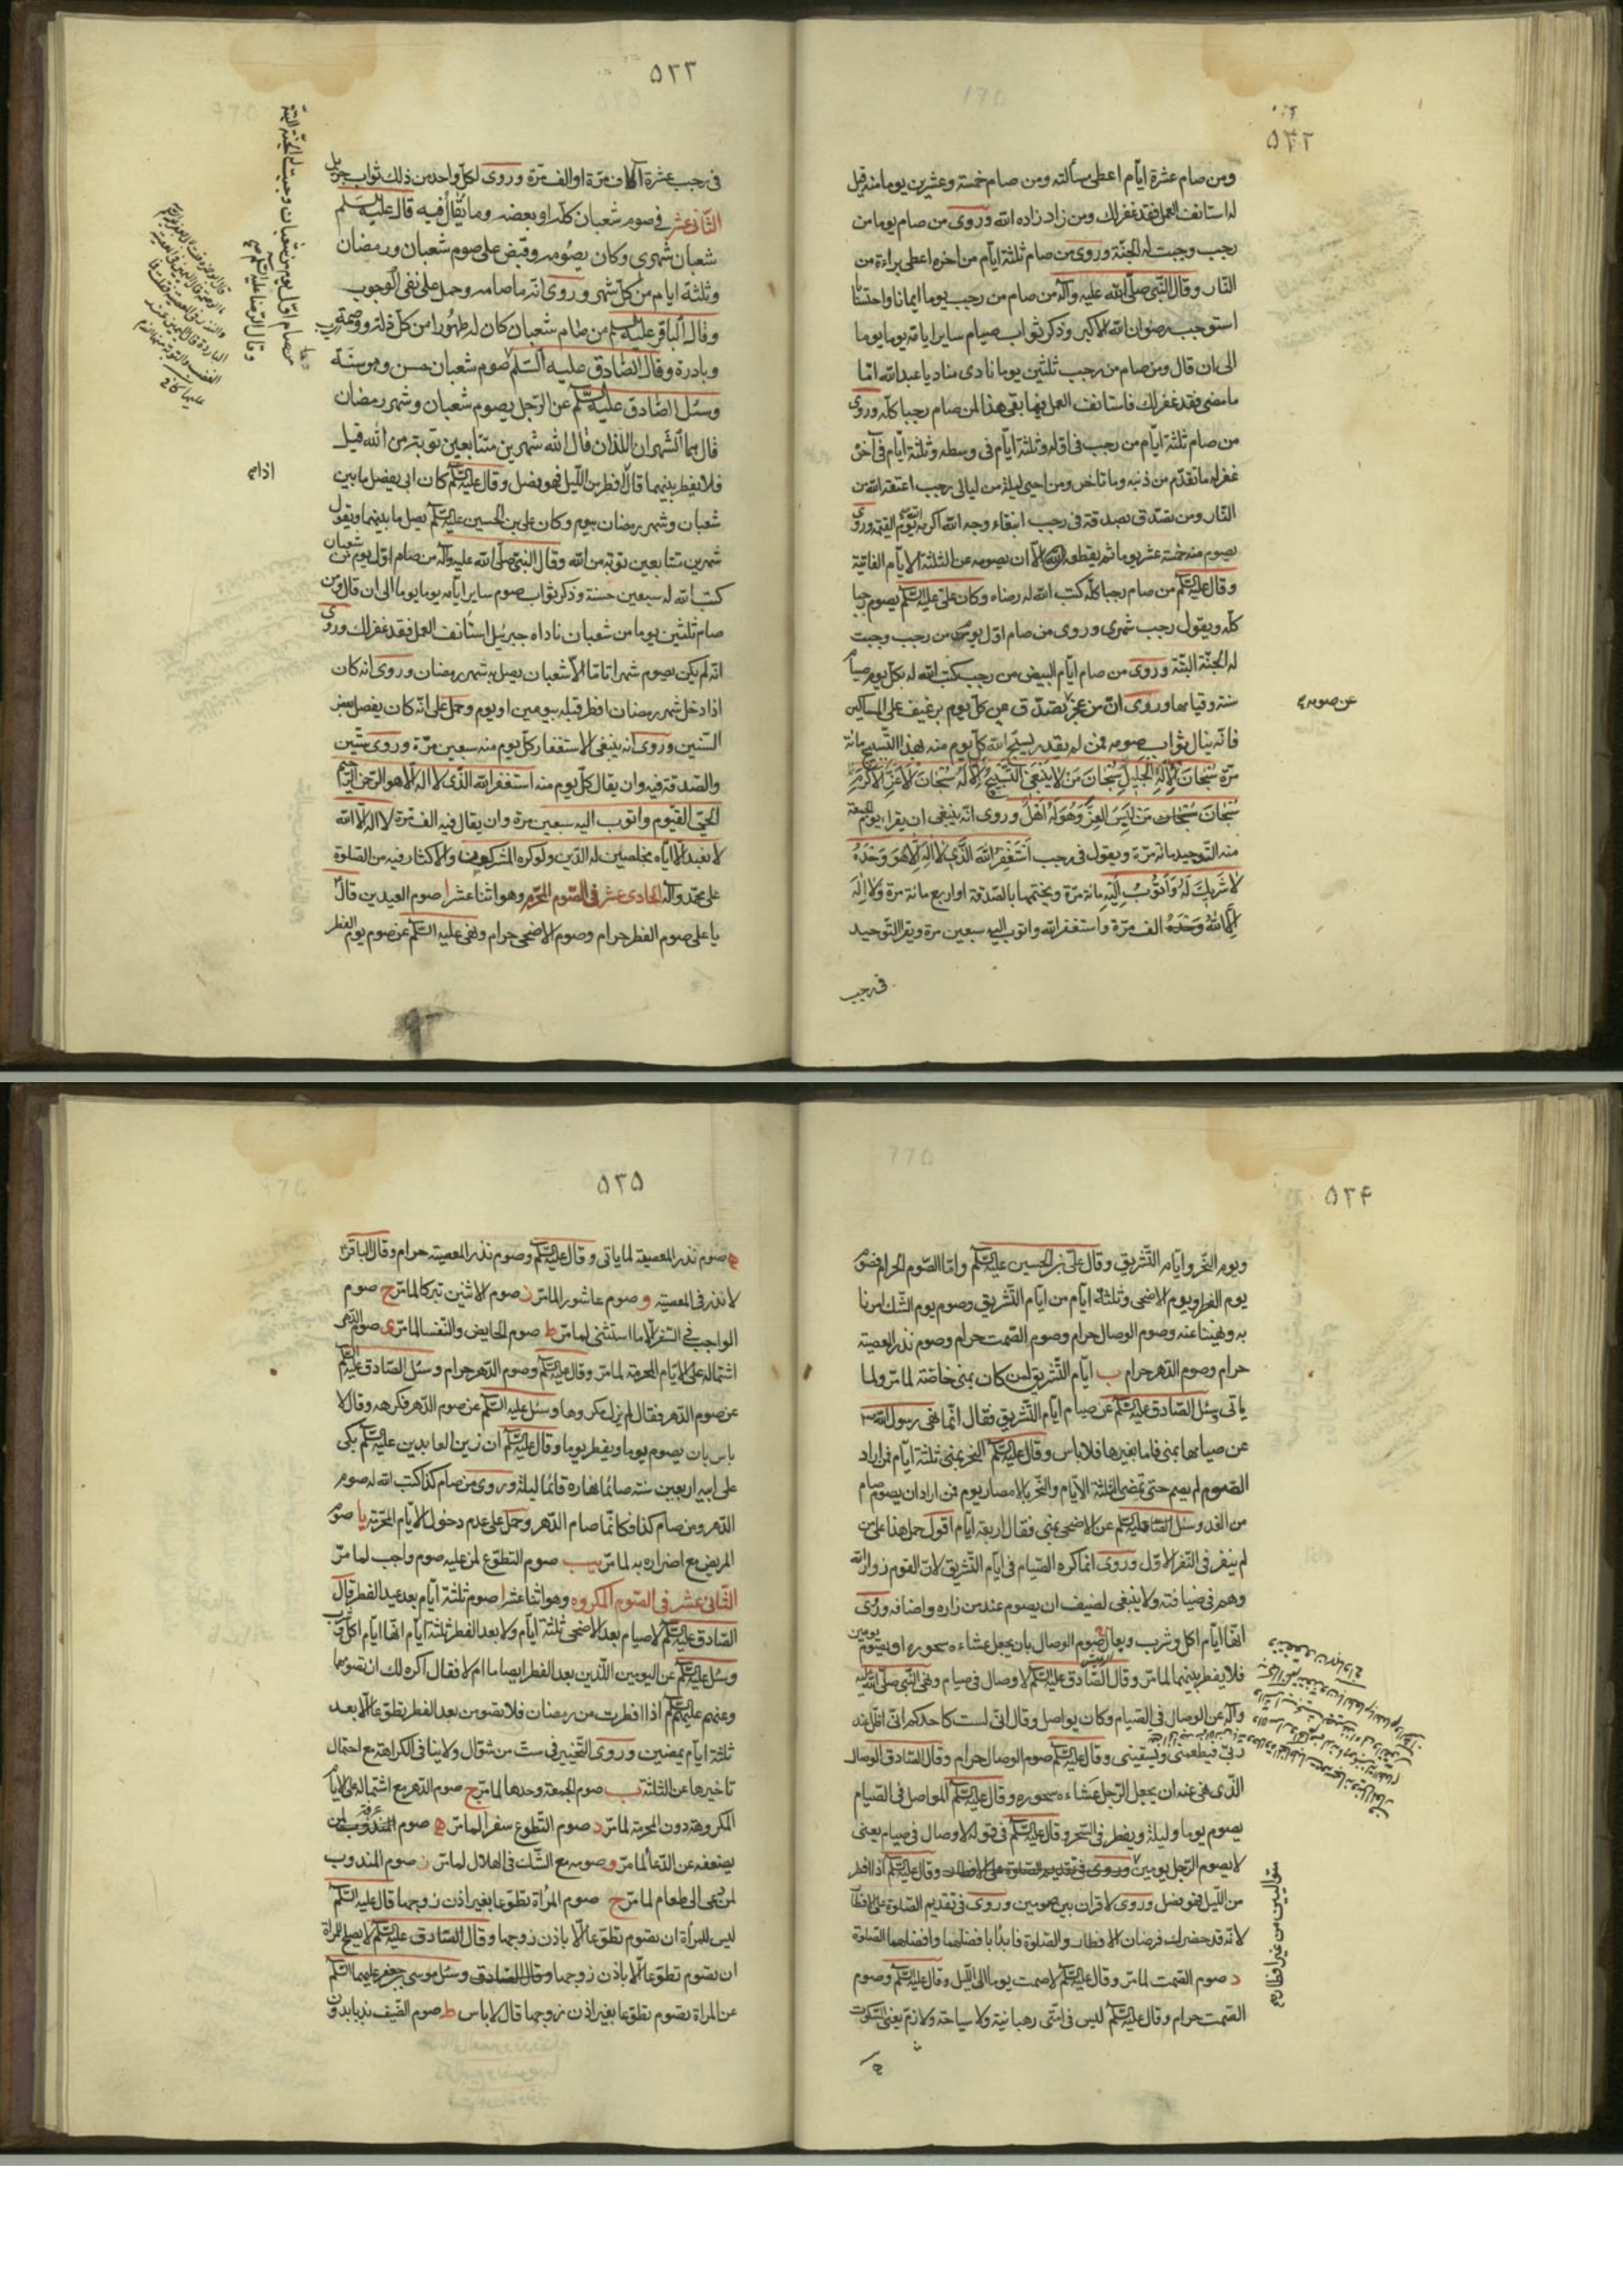 ۵۳۲
ومن صام عشرة ايّام اعطى مسألته ومن صام خمسة وعشرين يوما منه قيل
له استانف العمل فقد غفر لك ومن زاد زاده الله وروى من صام يوما من
رجب وجبت له الجنّة وروى من صام ثلثة ايّام من اخره اعطى براءة من
النّار وقال النّبى صلّى الله عليه وآله من صام من رجب يوما ايمانا واحتسابا
استوجب رضوان الله الاكبر وذكر ثواب صيام ساير ايامه يوما يوما
الى ان قال ومن صام من رجب ثلثين يوما نادى مناد يا عبد الله امّا
ما مضى فقد غفر لك فاستانف العمل فيما بقى هذا لمن صام رجبا كلّه وروى
من صام ثلثة ايّام من رجب فى اوله وثلثة ايّام فى وسطه وثلثة ايّام فى آخره
غفر له ما تقدّم من ذنبه وما تاخر ومن احيى ليلة من ليالى رجب اعتقه الله من
النّار ومن تصدّق بصدقة فى رجب ابتغاء وجه الله اكرمه الله يوم القيمة وروى
يصوم منه خمسة عشر يوما ثم يقطعه الا ان يصومه عن الثلثة الايام الفائتة
وقال عليه السّلم من صام رجبا كلّه كتب الله له رضاه وكان علىّ عليه السّلم يصوم رجبا
كلّه ويقول رجب شهرى وروى من صام اوّل يوم من رجب وجبت
له الجنّة البتّة وروى من صام ايّام البيض من رجب كتب الله له بكلّ يوم صيام
سنة وقيامها وروى انّ من عجز تصدّق عن كلّ يوم برغيف على المساكين
عن صومه
فانّه ينال ثواب صومه فمن لم يقدر يسبّح الله كلّ يوم منه بهذا التّسبيح مائة
مرّة سُبْحَانَ الْإِلَهِ الْجَلِيلِ سُبْحَانَ مَنْ لاَ يَنْبَغِى التَّسْبِيحُ إِلاَّ لَهُ سُبْحَانَ الْأَعَزِّ الْأَكْرَمِ
سُبْحَانَ مَنْ لَبِسَ الْعِزَّ وَهُوَ لَهُ اَهْلٌ وروى انّه ينبغى ان يقراء يوم الجمعة
منه التّوحيد مائة مرّة ويقول فى رجب اَسْتَغْفِرُ اللهَ الَّذِى لاَ اِلَهَ اِلاَّ هُوَ وَحْدَهُ
لاَ شَرِيكَ لَهُ وَاَتُوبُ اِلَيْهِ مائة مرّة ويختمها بالصّدقة او اربع مائة مرّة ولاَ اِلَهَ
اِلاَّ اللهُ وَحْدَهُ الف مرّة واستغفر الله واتوب اليه سبعين مرة ويقرا التّوحيد
فى رجب
۵۳۳
فى رجب عشرة آلاف مرّة او الف مرّة وروى لكلّ واحد من ذلك ثواب جزيل
الثّانى عشر فى صوم شعبان كلّه او بعضه وما يقال فيه قال عليه السّلم
شعبان شهرى وكان يصومه وقبض على صوم شعبان ورمضان
وثلثة ايام من كلّ شهر وروى انّه ما صامه وحمل على نفى الوجوب
وقال الباقر عليه السّلم من صام شعبان كان له طهورا من كلّ زلة ووصمة
وبادرة وقال الصّادق عليه السّلم صوم شعبان حسن وهو سنّة
وسئل الصّادق عليه السّلم عن الرّجل يصوم شعبان وشهر رمضان
قال هما الشّهران اللّذان قال الله شهرين متتابعين توبة من الله قيل
فلا يفطر بينهما قال اذا افطر من اللّيل فهو فصل وقال عليه السّلم كان ابى يفصل ما بين
شعبان وشهر رمضان بيوم وكان على بن الحسين عليه السّلم يصل ما بينهما ويقول
شهرين متتابعين توبة من الله وقال النّبى صلّى الله عليه وآله من صام اوّل يوم من شعبان
كتب الله له سبعين حسنة وذكر ثواب صوم ساير ايّامه يوما يوما الى ان قال ومن
صام ثلثين يوما من شعبان ناداه جبرئيل استانف العمل فقد غفر لك وروى
انّه لم يكن يصوم شهرا تامّا الاّ شعبان يصل به شهر رمضان وروى انه كان
اذا دخل شهر رمضان افطر قبله بيومين او يوم وحمل على انّه كان يفصل بعض
السّنين وروى انه ينبغى الاستغفار كلّ يوم منه سبعين مرّة وروى ستّين
والصّدقة فيه وان يقال كلّ يوم منه استغفر الله الذى لا اله الاّ هو الرّحمن الرّحيم
الحىّ القيّوم واتوب اليه سبعين مرة وان يقال فيه الف مرّة لا اله الا الله
لا نعبد الاّ ايّاه مخلصين له الدّين ولو كره المشركون والاكثار فيه من الصّلوة
على محمّد وآله الحادى عشر فى الصّوم المحرّم وهو اثنا عشر ا صوم العيدين قال
يا على صوم الفطر حرام وصوم الاضحى حرام ونهى عليه السّلم عن صوم يوم الفطر
من صام اوّل يوم من شعبان وجبت له الجنّة البتّة
وقال الرّضا عليه السّلم
۵۳۴
ويوم النّحر وايّام التّشريق وقال علىّ بن الحسين عليه السّلم وامّا الصّوم الحرام فصوم
يوم الفطر ويوم الاضحى وثلثة ايّام من ايّام التّشريق وصوم يوم الشّك امرنا
به ونهينا عنه وصوم الوصال حرام وصوم الصّمت حرام وصوم نذر المعصية
حرام وصوم الدّهر حرام ب ايّام التّشريق لمن كان بمنى خاصّة لما مرّ ولما
ياتى وسئل الصّادق عليه السّلم عن صيام ايّام التّشريق فقال انّما نهى رسول الله
عن صيامها بمنى فاما بغيرها فلا باس وقال عليه السّلم النّحر بمنى ثلثة ايّام فمن اراد
الصّوم لم يصم حتى تمضى الثلثة الايّام والنّحر بالامصار يوم فمن اراد ان يصوم صام
من الغد وسئل الصّادق عليه السّلم عن الاضحى بمنى فقال اربعة ايّام اقول حمل هذا على من
لم ينفر فى النّفر الاوّل وروى انما كره الصّيام فى ايّام التّشريق لانّ القوم زوار الله
وهم فى ضيافته ولا ينبغى لضيف ان يصوم عند من زاره واضافه وروى
انّها ايّام اكل وشرب وبعال ج صوم الوصال بان يجعل عشاءه سحوره او يصوم يومين
فلا يفطر بينهما لما مرّ وقال الصّادق عليه السّلم لا وصال فى صيام ونهى النّبى صلّى الله عليه
وآله عن الوصال فى الصّيام وكان يواصل وقال انّى لست كاحدكم انّى اظلّ عند
ربّى فيطعمنى ويسقينى وقال عليه السّلم صوم الوصال حرام وقال الصّادق الوصال
الّذى نهى عنه ان يجعل الرّجل عشاءه سحوره وقال عليه السّلم المواصل فى الصّيام
يصوم يوما وليلة ويفطر فى السّحر وقال عليه السّلم فى قوله لا وصال فى صيام يعنى
لا يصوم الرّجل يومين وروى فى تقديم الصّلوة على الافطار وقال عليه السّلم اذا افطر
من اللّيل فهو فصل وروى لا قران بين صومين وروى فى تقديم الصّلوة على الافطار
لانّه قد حضرك فرضان الافطار والصّلوة فابدأ بافضلهما وافضلهما الصّلوة
د صوم الصّمت لما مرّ وقال عليه السّلم لا صمت يوما الى اللّيل وقال عليه السّلم وصوم
الصّمت حرام وقال عليه السّلم ليس فى امّتى رهبانيّة ولا سياحة ولا زم يعنى السّكوت
متواليين من غير افطار
۵۳۵
ه صوم نذر المعصية لما ياتى وقال عليه السّلم وصوم نذر المعصية حرام وقال الباقر
لا نذر فى المعصية و صوم عاشورا لما مرّ ز صوم الاثنين تبركا لما مرّ ح صوم
الواجب فى السّفر الاّ ما استثنى لما مرّ ط صوم الحايض والنّفسا لما مرّ ى صوم الدّهر
اشتماله على الايّام المحرمة لما مرّ وقال عليه السّلم وصوم الدّهر حرام وسئل الصّادق عليه السّلم
عن صوم الدّهر فقال لم يزل مكروها وسئل عليه السّلم عن صوم الدّهر فكرهه وقال لا
باس بان يصوم يوما ويفطر يوما وقال عليه السّلم ان زين العابدين عليه السّلم بكى
على ابيه اربعين سنة صائما نهاره قائما ليلة وروى من صام كذا كتب الله له صوم
الدّهر ومن صام كذا فكانّما صام الدّهر وحمل على عدم دخول الايّام المحرّمة يا صوم
المريض مع اضراره به لما مرّ يب صوم التطوّع لمن عليه صوم واجب لما مرّ
الثّانى عشر فى الصّوم المكروه وهو اثنا عشر ا صوم ثلثة ايّام بعد عيد الفطر قال
الصّادق عليه السّلم لا صيام بعد الاضحى ثلثة ايّام ولا بعد الفطر ثلثة ايّام انّها ايّام اكل وشرب
وسئل عليه السّلم عن اليومين اللّذين بعد الفطر ايصامان ام لا فقال اكره لك ان تصومهما
وعنهم عليهم السّلم اذا افطرت من رمضان فلا تصومن بعد الفطر تطوّعا الاّ بعد
ثلثة ايّام يمضين وروى التّخيير فى ستّ من شوّال ولا ينافى الكراهة مع احتمال
تاخيرها عن الثلثة ب صوم الجمعة وحدها لما مرّ ج صوم الدّهر مع اشتماله على الايّام
المكروهة دون المحرمة لما مرّ د صوم التّطوع سفرا لما مرّ ه صوم عرفة لمن
يضعفه عن الدّعا لما مرّ و صومه مع الشّك فى الهلال لما مرّ ز صوم المندوب
لمن دعى الى طعام لما مرّ ح صوم المرأة تطوّعا بغير اذن زوجها قال عليه السّلم
ليس للمرأة ان تصوم تطوّعا الاّ باذن زوجها وقال الصّادق عليه السّلم لا يصلح للمرأة
ان تصوم تطوّعا الاّ باذن زوجها وقال الصّادق وسئل موسى بن جعفر عليهما السّلم
عن المرأة تصوم تطوّعا بغير اذن زوجها قال لا باس ط صوم الضّيف ندبا بدون